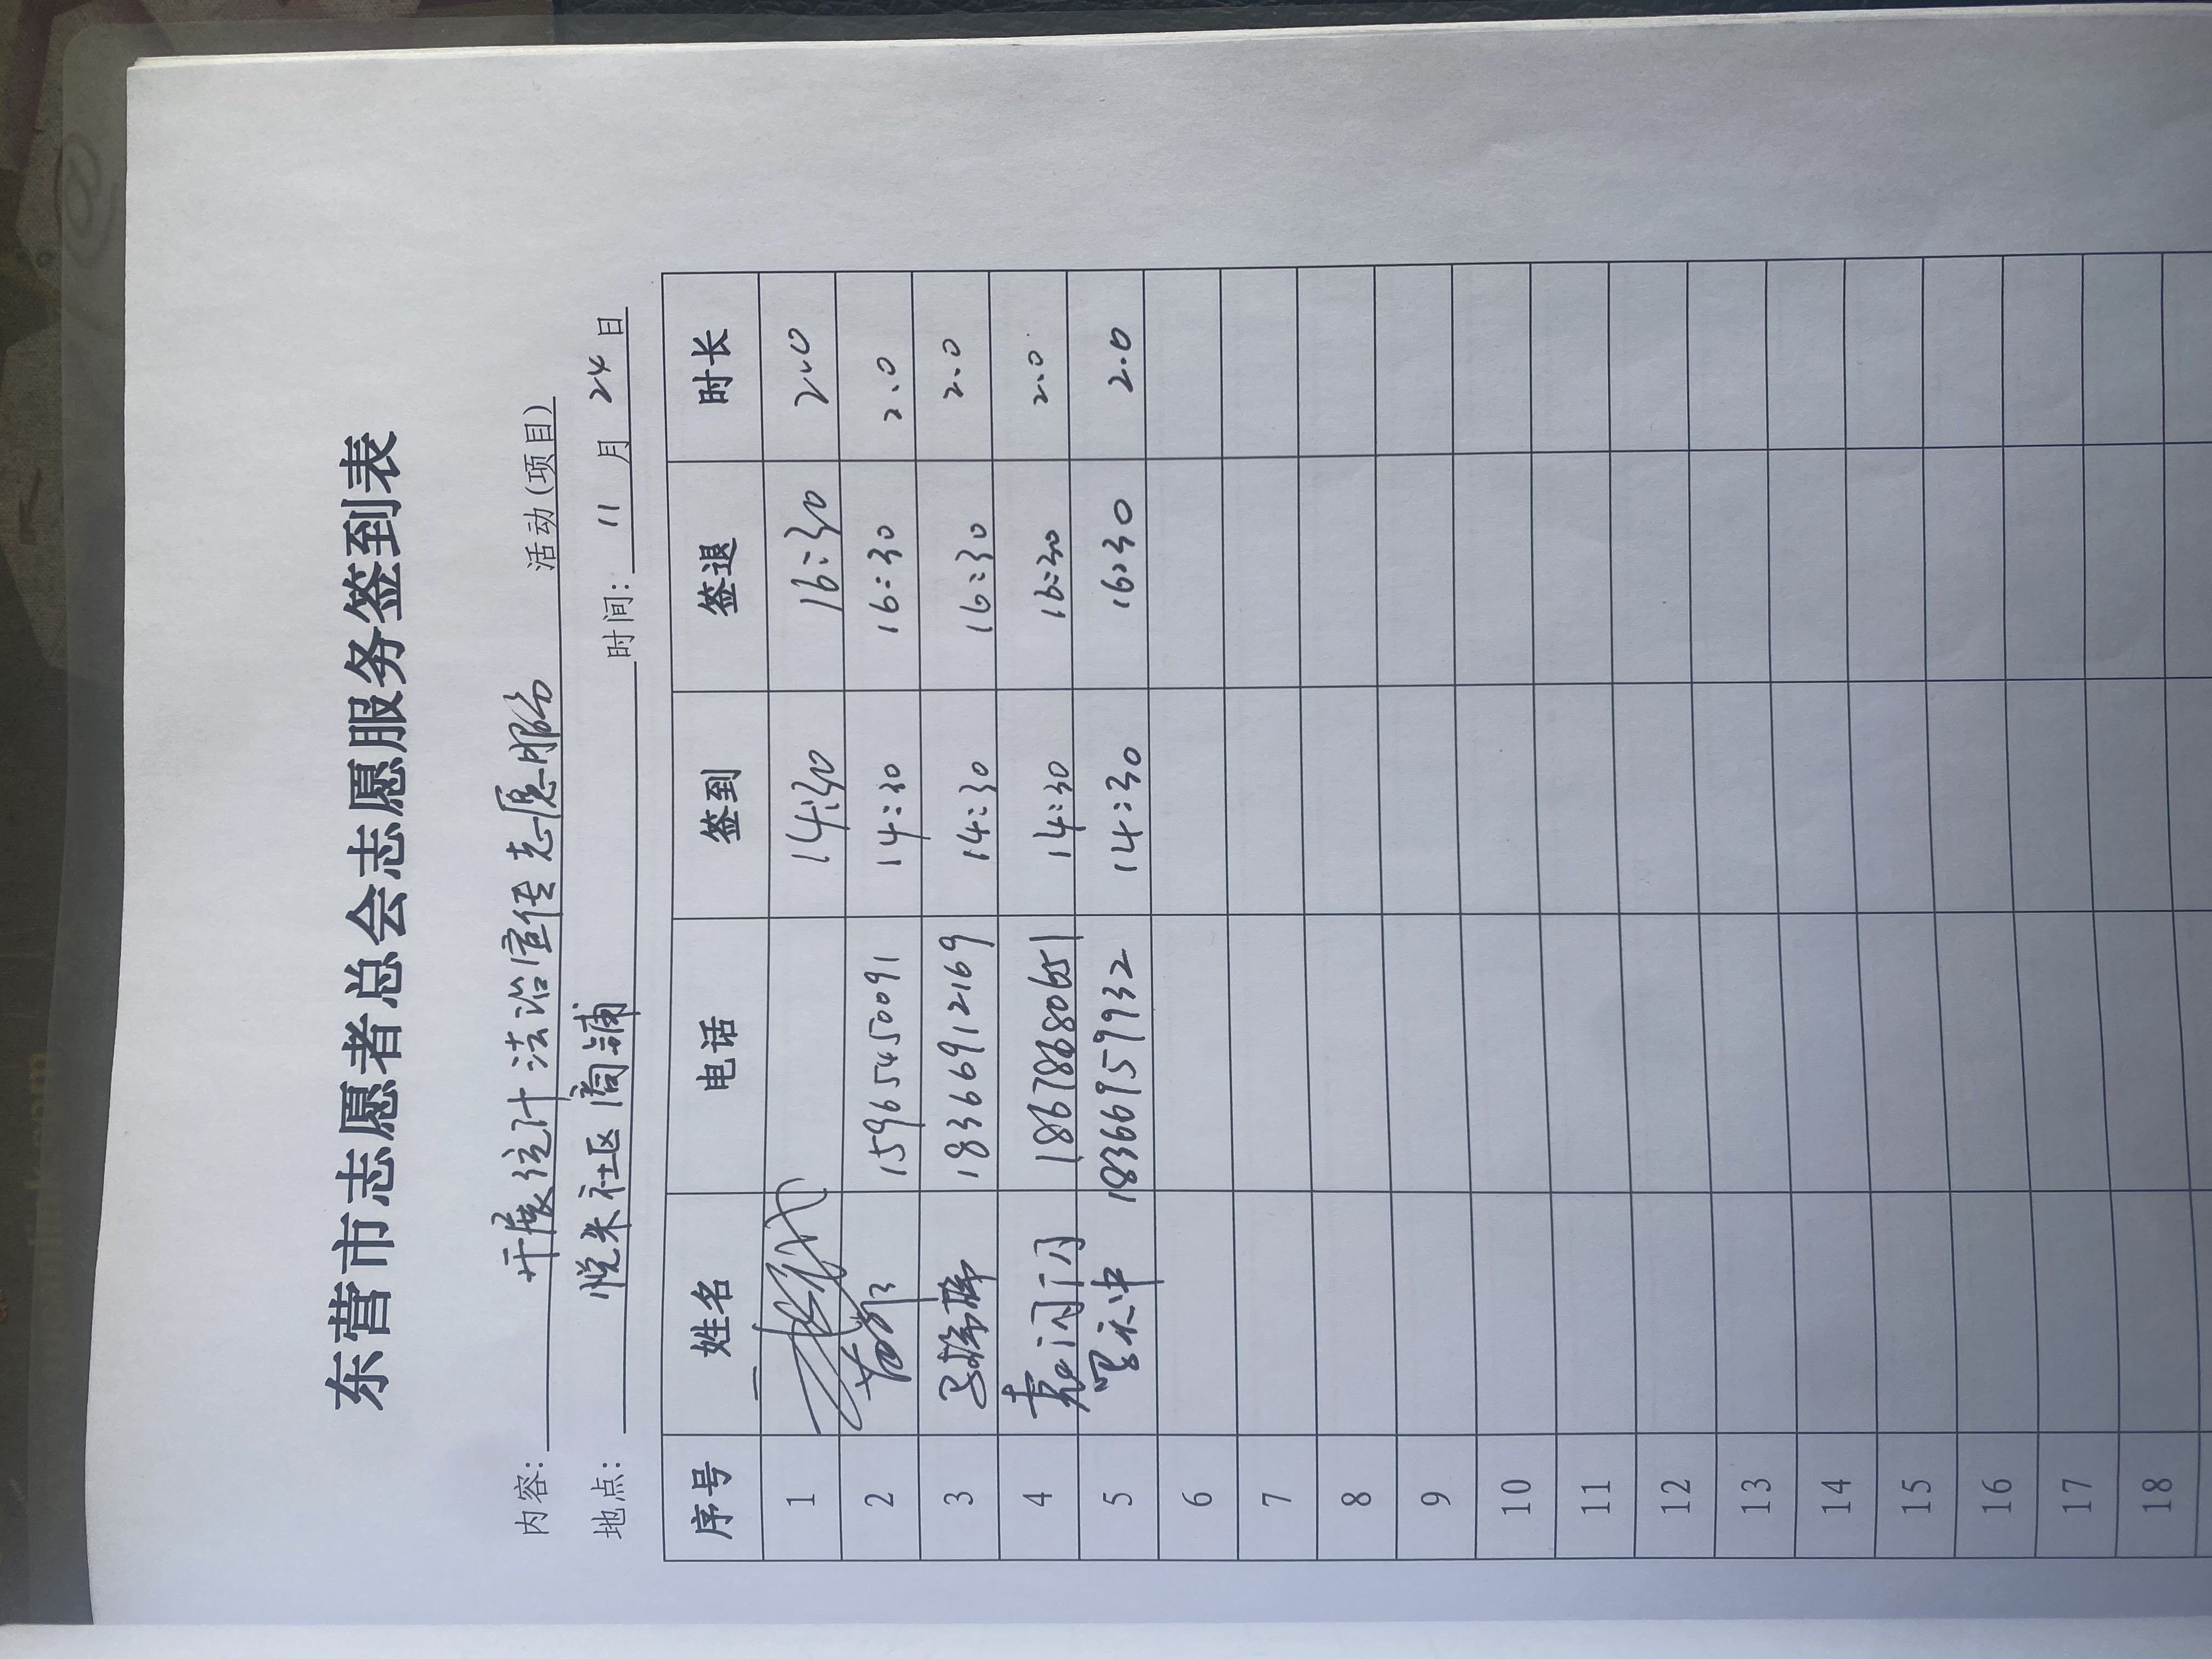 东营市志愿者总会志愿服务签到表
内容: 开展统计法治宣传志愿服务 活动(项目)
地点: 悦来社区商铺 时间: 11 月 24 日
序号 姓名 电话 签到 签退 时长
1 14:30 16:30 2.0
2 15965450091 14:30 16:30 2.0
3 18366912169 14:30 16:30 2.0
4 袁闪闪 14:30 16:30 2.0
5 18366959932 14:30 16:30 2.0
6
7
8
9
10
11
12
13
14
15
16
17
18